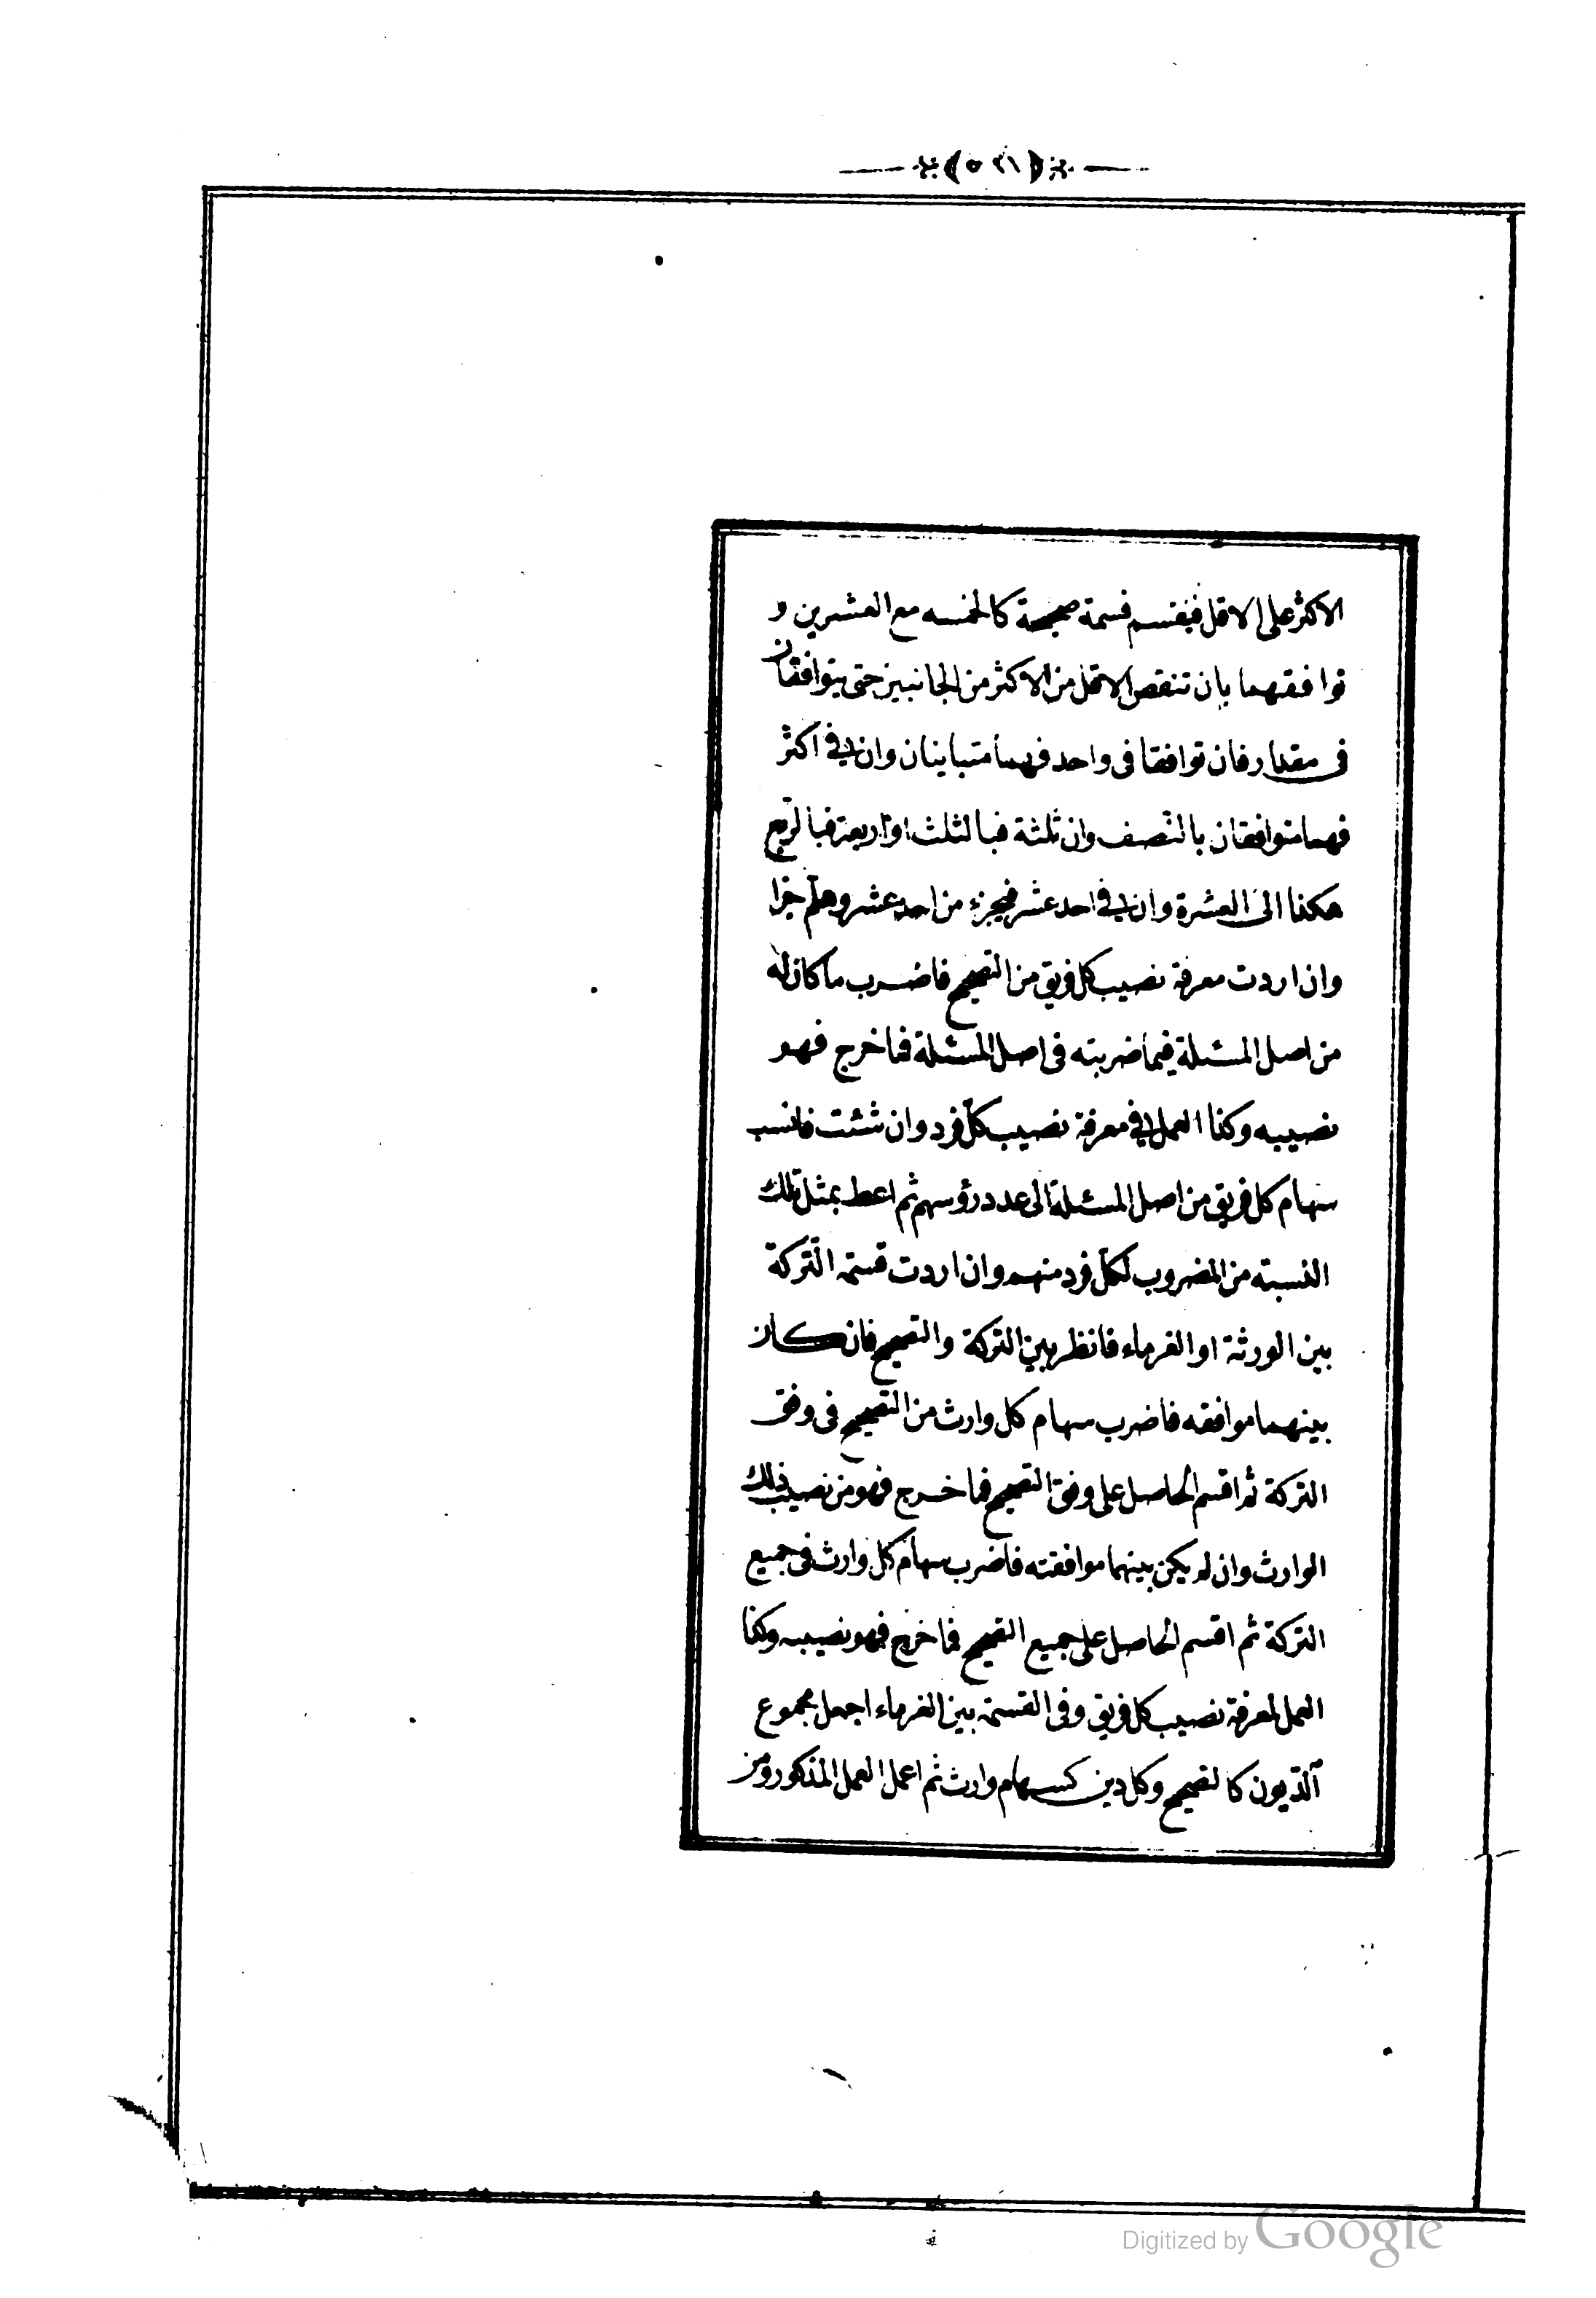 ﴿٥٢١﴾
الاكثر على الاقل فينقسم قسمة صحيحة كالخمسه مع العشرين و
توافقهما بان تنقص الاقل من الاكثر من الجانبين حتى يتوافقان
فى مقدار فان توافقا فى واحد فهما متباينان وان فى اكثر
فهما متوافقان بالنّصف وان ثلثة فبالثلث او اربعة فبالرّبع
هكذا الى العشرة وان فى احد عشر فبجزء من احد عشر وهلمّ جرّا
وان اردت معرفة نصيب كل فريق من التصحيح فاضرب ما كان له
من اصل المسئلة فيما ضربته فى اصل المسئلة فما خرج فهو
نصيبه وكذا العمل فى معرفة نصيب كلّ فرد وان شئت فانسب
سهام كل فريق من اصل المسئلة الى عدد رؤسهم ثم اعط بمثل تلك
النسبته من المضروب لكلّ فرد منهم وان اردت قسمة التّركة
بين الورثة او الغرماء فانظر بين التركة والتصحيح فان كان
بينهما موافقه فاضرب سهام كل وارث من التصحيح فى وفق
التركة ثم اقسم الحاصل على وفق التصحيح فما خرج فهو من نصيب ذلك
الوارث وان لم يكن بينهما موافقته فاضرب سهام كل وارث فى جميع
التركة ثم اقسم الحاصل على جميع التصحيح فما خرج فهو نصيبه وكذا
العمل لمعرفة نصيب كل فريق وفى القسمة بين الغرماء اجعل مجموع
الدّيون كالتصحيح وكل دين كسهام وارث ثم اعمل العمل المذكور ومن
Digitized by Google